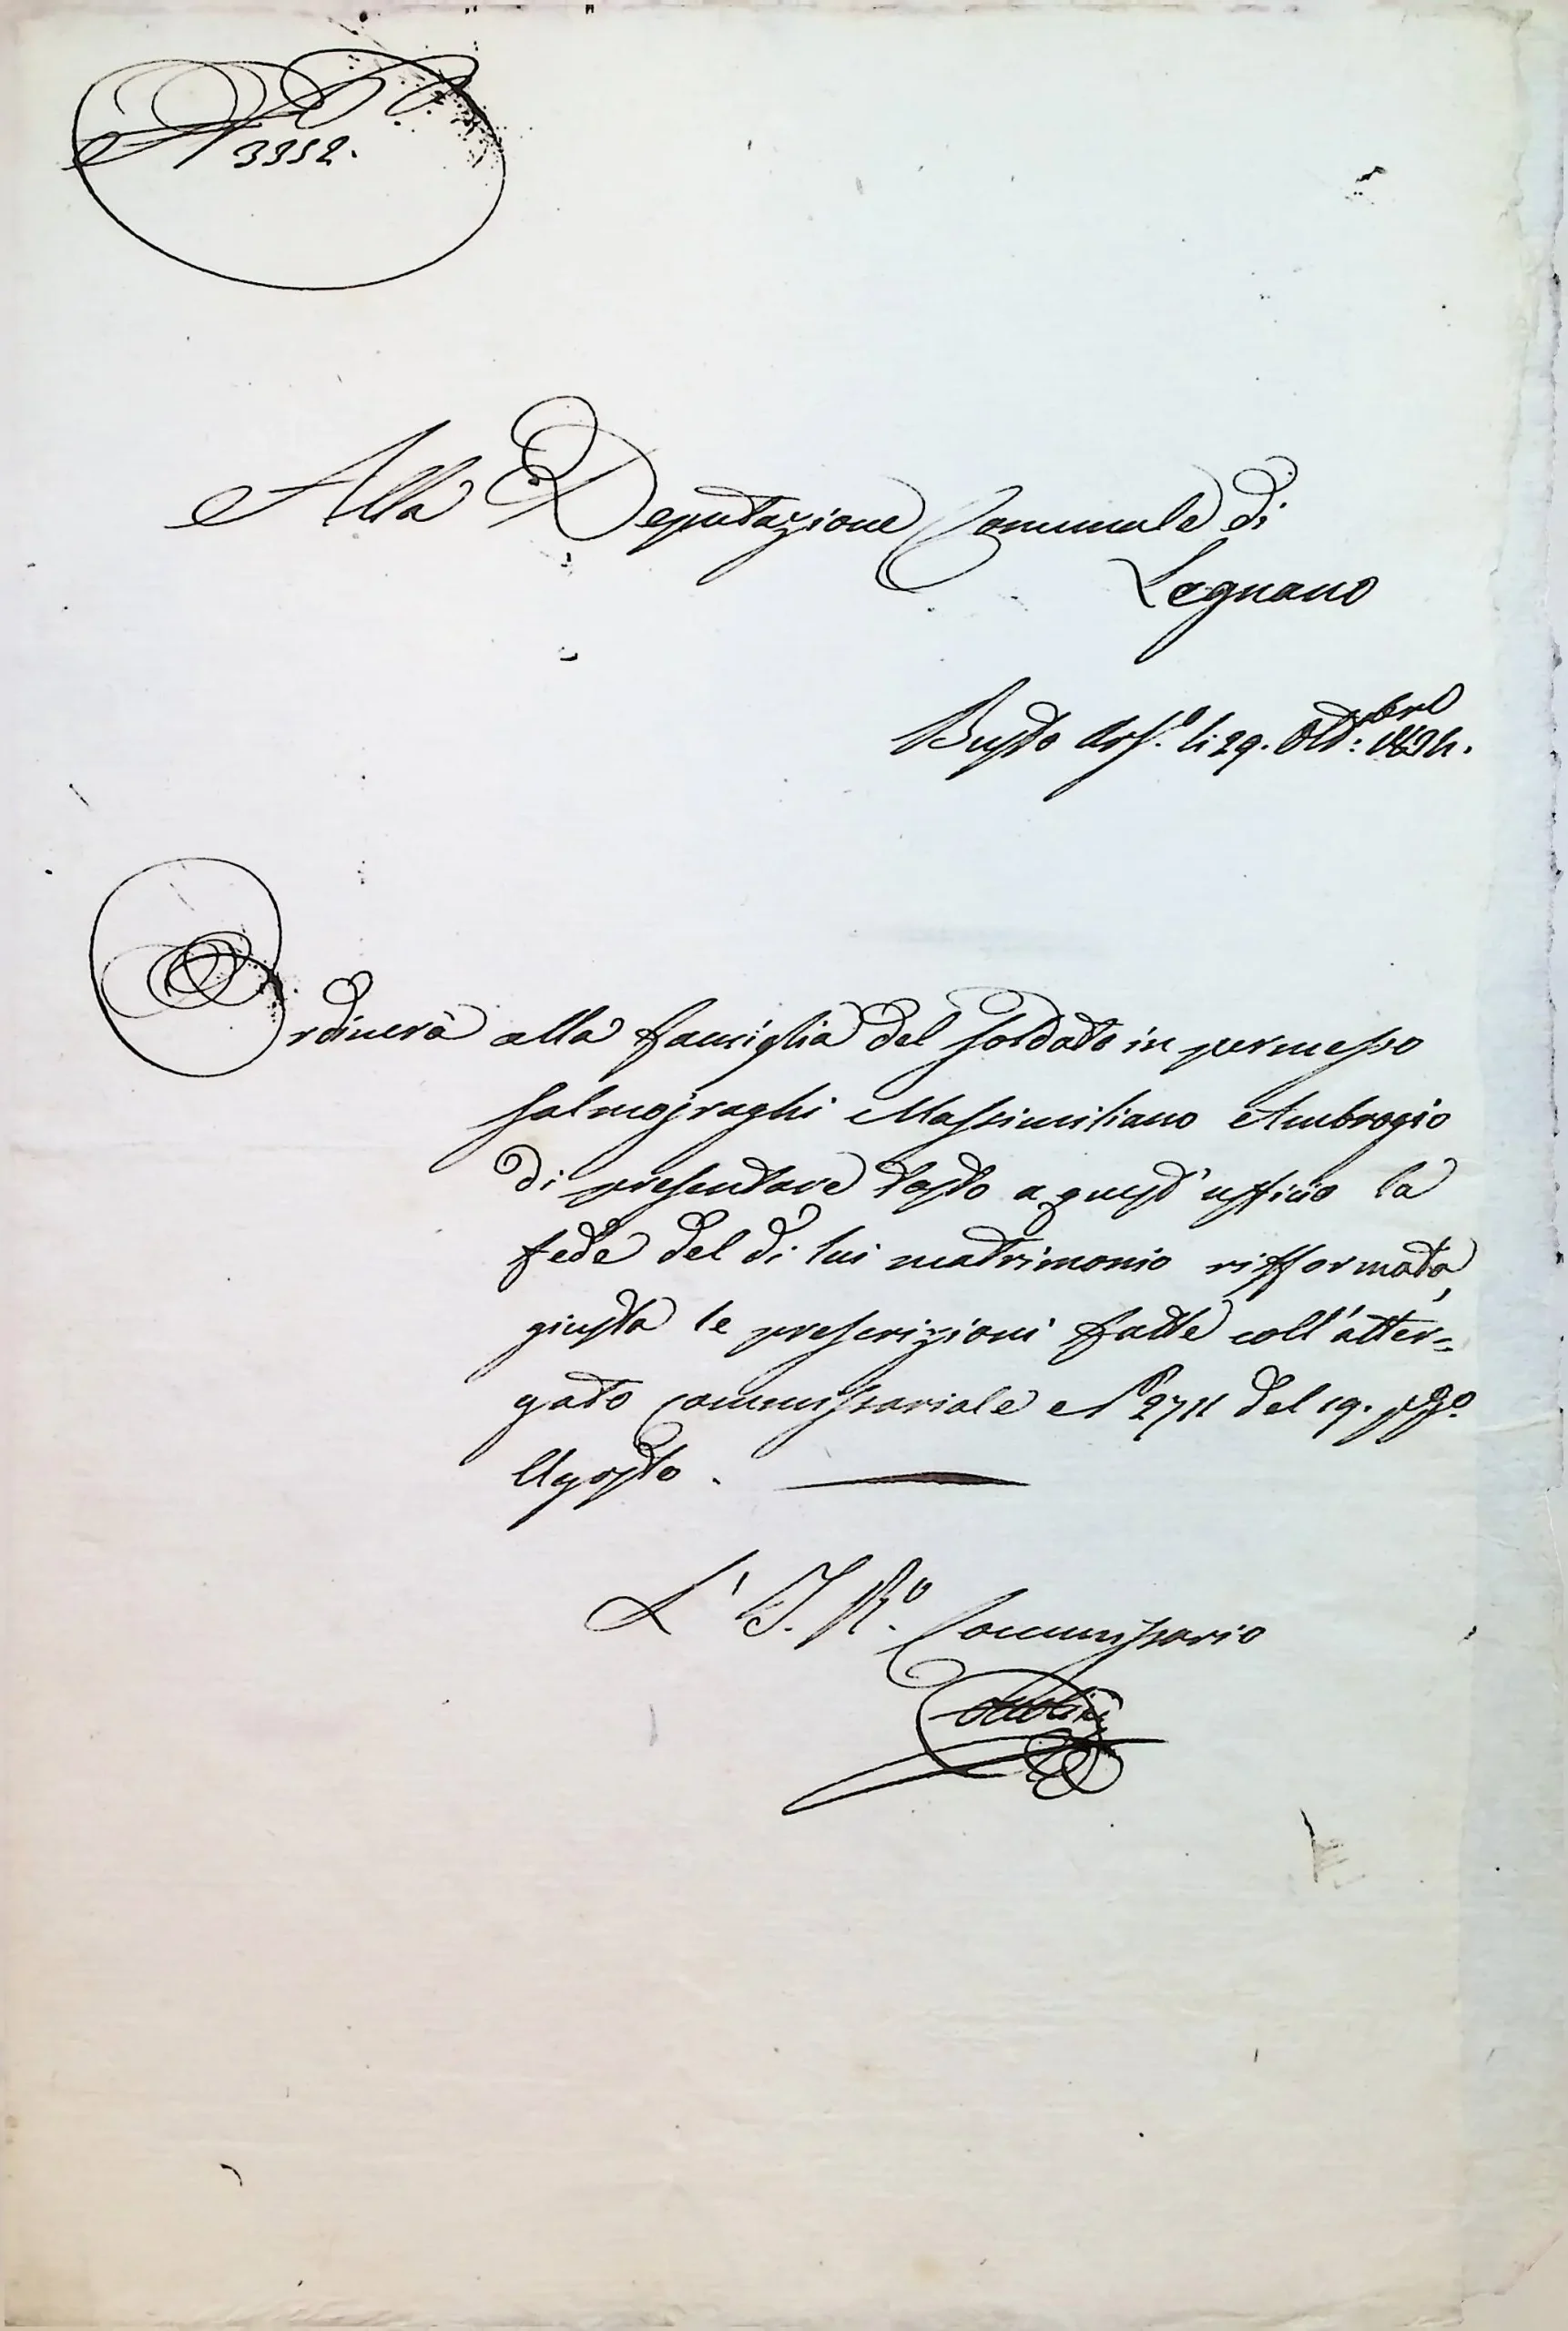 N 3352.
Alla Deputazione Comunale di
Legnano
Busto Ars.° li 29. Ott:bre 1834.
Ordinerà alla famiglia del soldato in permesso
Salmojraghi Massimiliano Ambrogio
di presentare tosto a quest'ufficio la
fede del di lui matrimonio rifformata,
giusta le prescrizioni fatte coll'atter=
gato Commissariale N° 2711 del 19. pp°.
Agosto.
L'I. R.° Commissario